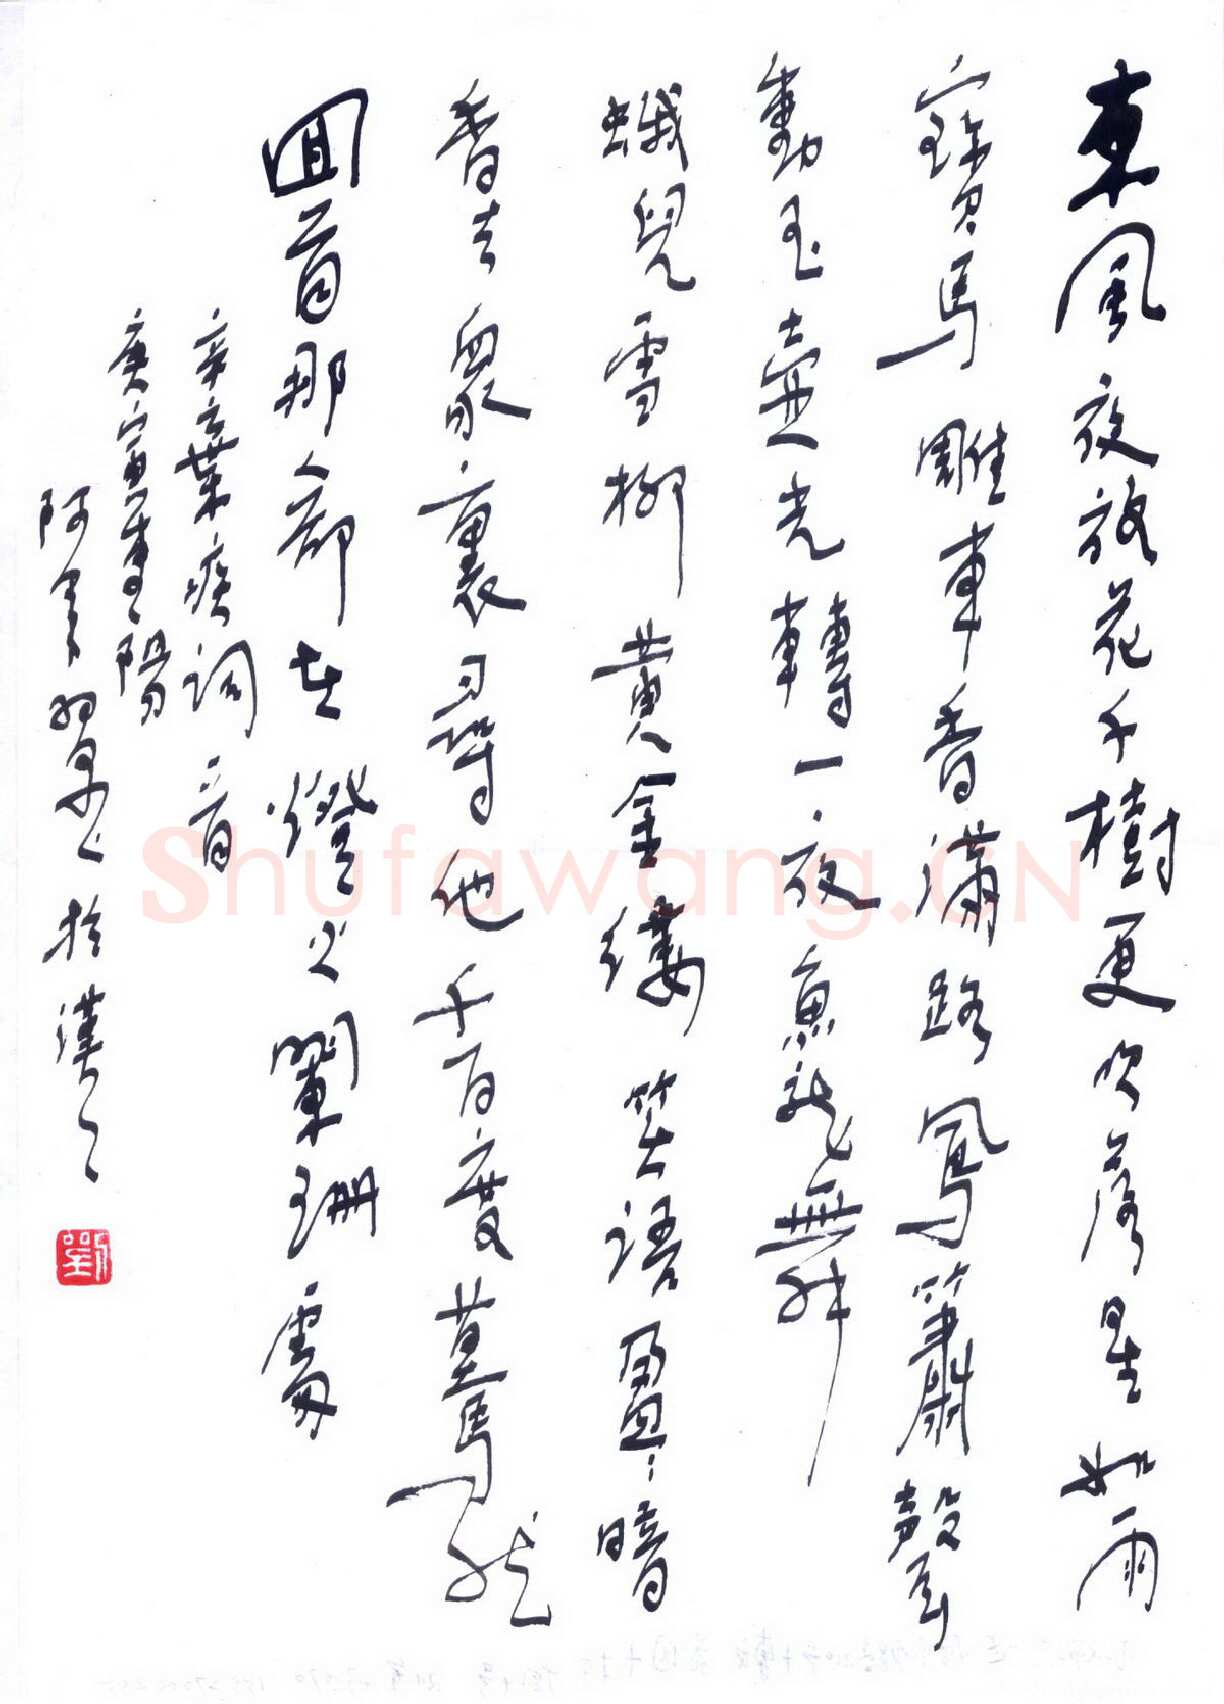 東風夜放花千樹更吹落星如雨
寶馬雕車香滿路鳳簫聲
動玉壺光轉一夜魚龍舞
蛾兒雪柳黃金縷笑語盈盈暗
香去眾裏尋他千百度驀然
回首那人却在燈火闌珊處
辛棄疾詞一首
庚寅重陽
阿
於漢口
劉
Shufawang.CN